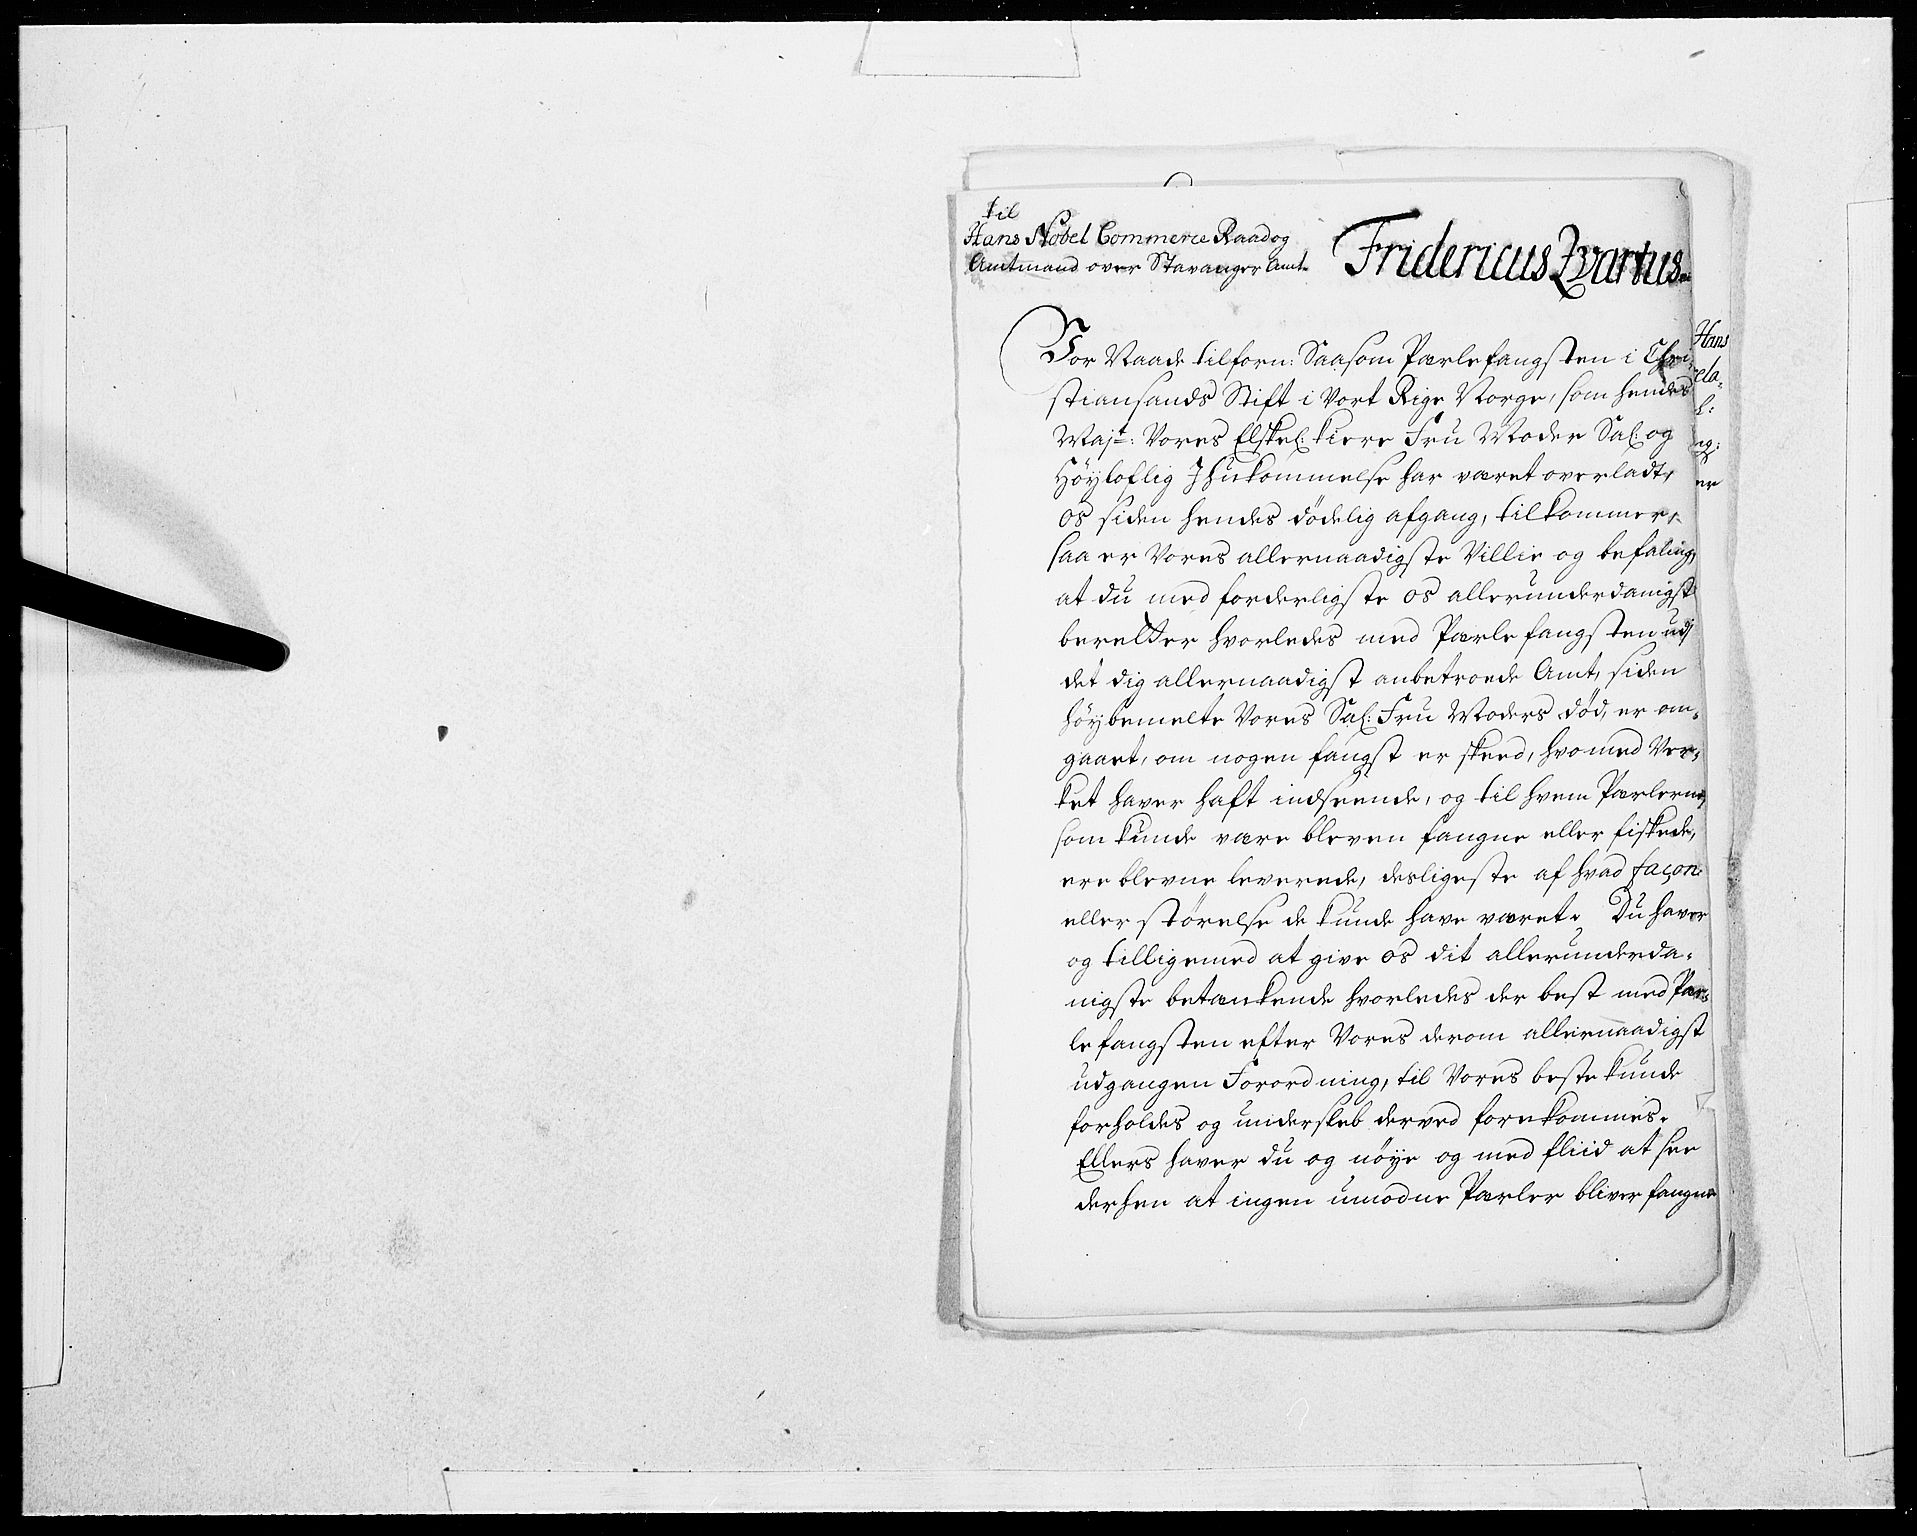 til
Hans Nobel Commerce Raad og
Amtmand over Stavanger Amt.
Fridericus Qvartus.
Vor Naade tilforn: Saasom Parlefangsten i Chri-
stiansands Stift i Vort Rige Norge, som hendes
Majt: Vores Elskel: kiere Fru Moder Sal: og
Höyloflig Ihukommelse har været overladt,
os siden hendes dödelig afgang, tilkommer,
saa er Vores allernaadigste Villie og befaling,
at du med forderligste os allerunderdanigst
beretter hvorledes med Parlefangsten udj
det dig allernaadigst anbetroede Amt, siden
höybemelte Vores Sal: Fru Moders död, er om-
gaaet, om nogen fangst er skeed, hvo med Ver-
ket haver haft indseende, og til hvem Parlerne,
som kunde være bleven fangne eller fiskede,
ere blevne leverede, desligeste af hvad façon
eller störelse de kunde have været. Du haver
og tilligemed at give os dit allerunderda-
nigste betænkende hvorledes der best med Par-
lefangsten efter Vores derom allernaadigst
udgangen Forordning, til Vores beste kunde
forholdes og underskeb derved forekommes.
Ellers haver du og nöye og med fliid at see
derhen at ingen umodne Parler bliver fangne
Hans
ela-
l:
og:
er